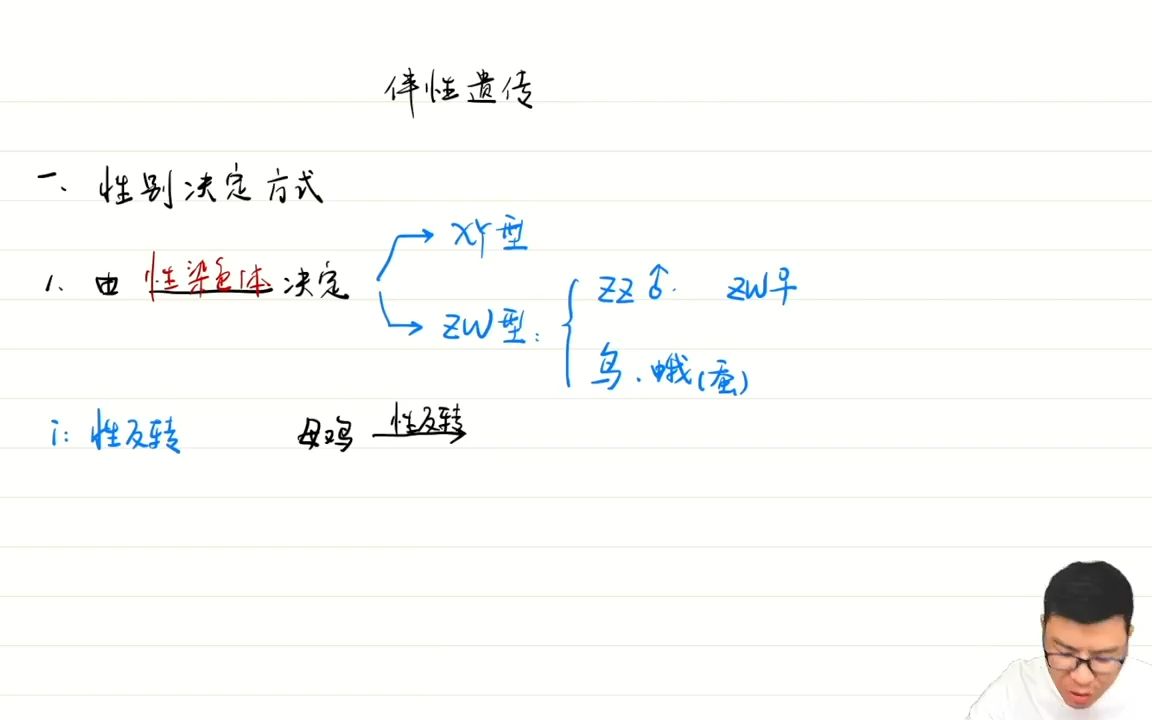 伴性遗传
一、性别决定方式
XY型
1、由性染色体决定
ZZ♂. ZW♀
ZW型:
鸟、蛾(蚕)
i: 性反转 母鸡 性反转